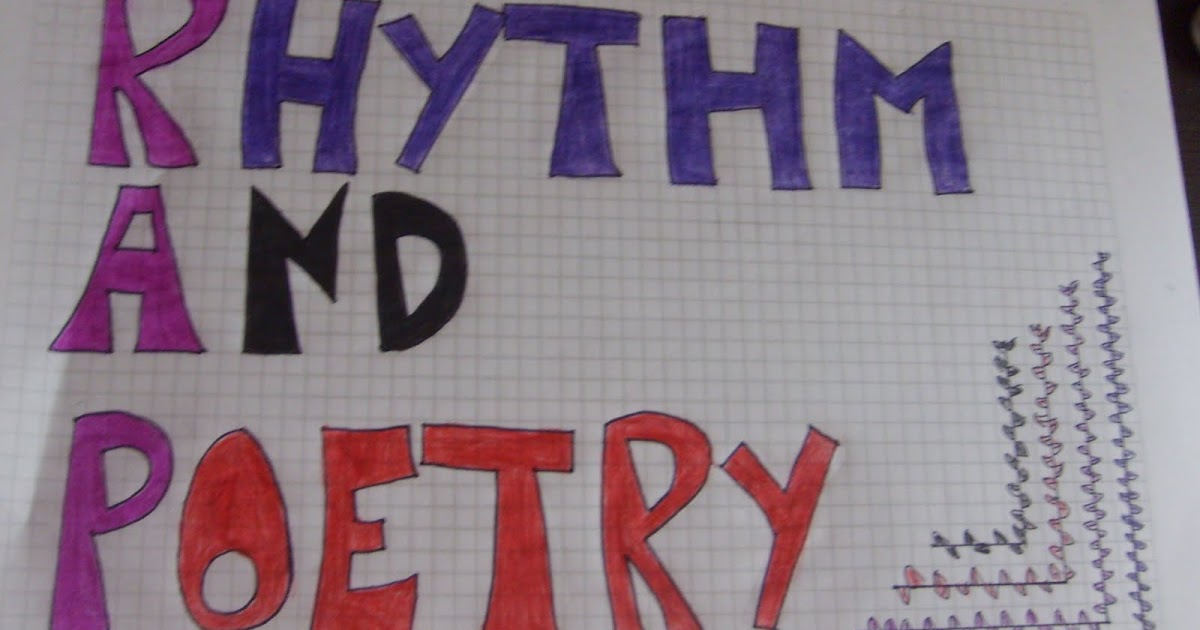 RHYTHM
AND
POETRY